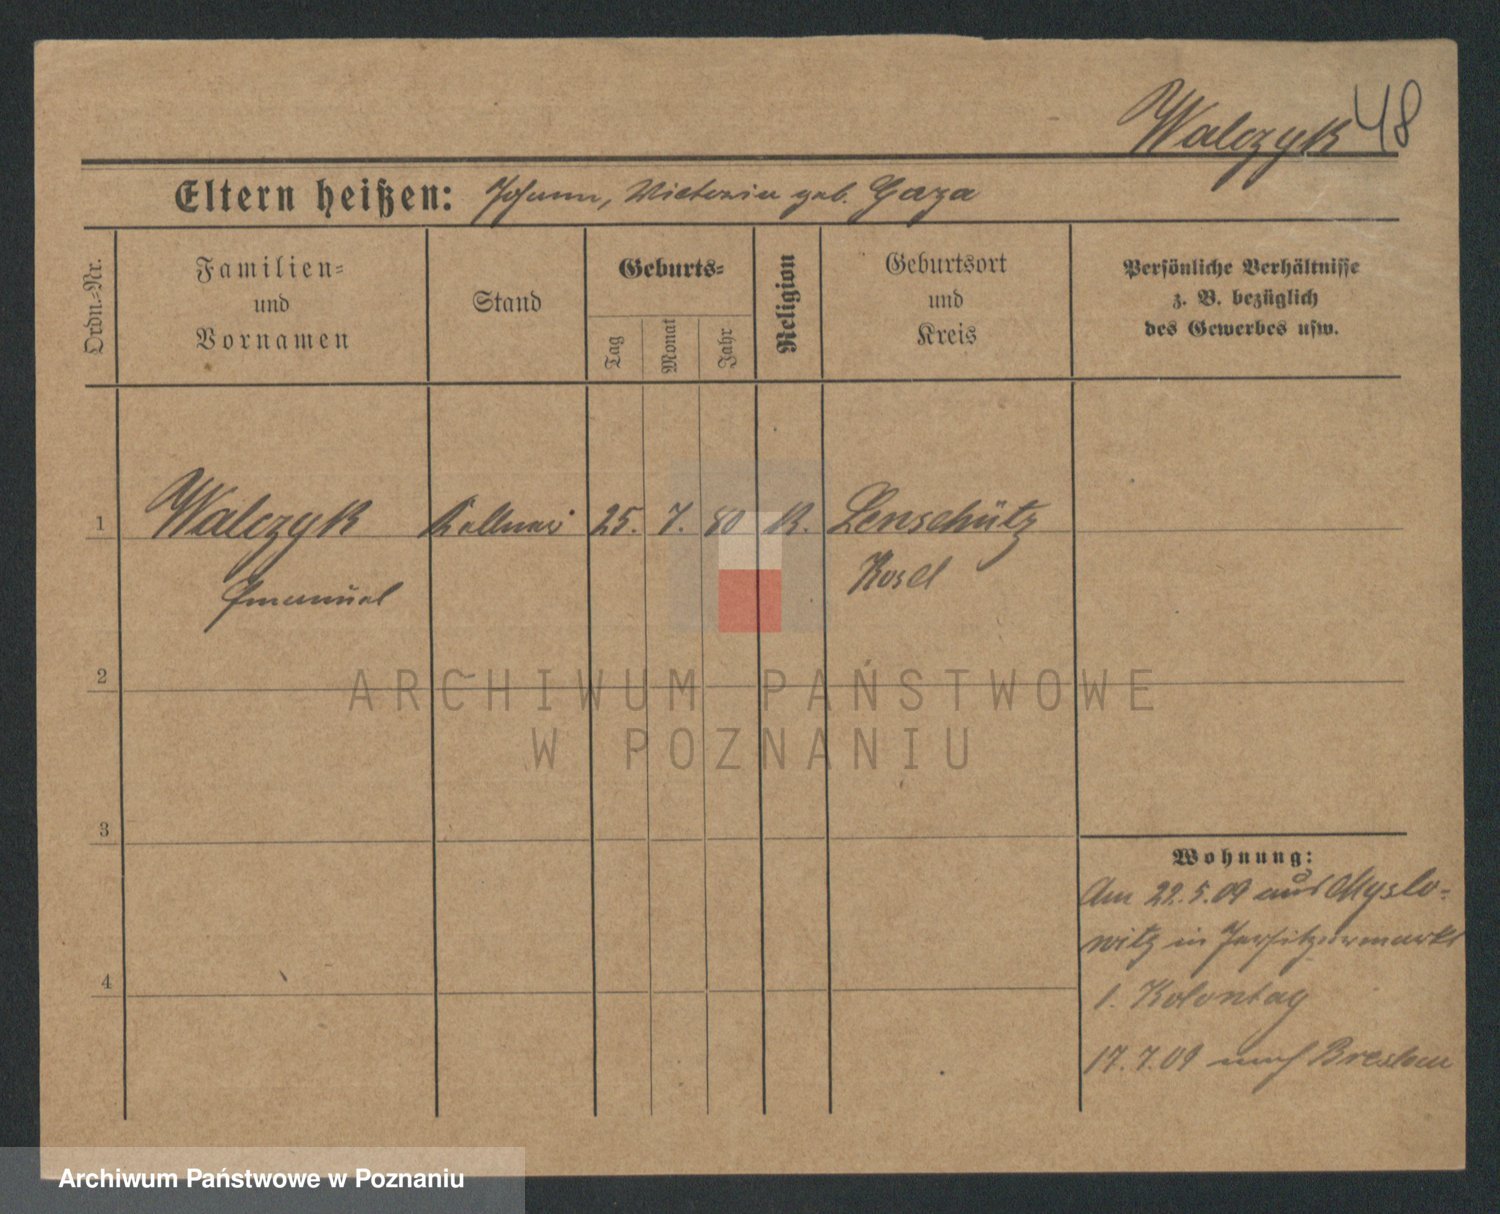 Walczyk 48
Eltern heißen: Johann, Victoria geb. Gaza
Ordn.-Nr.
Familien-
und
Vornamen
Stand
Geburts-
Tag
Monat
Jahr
Religion
Geburtsort
und
Kreis
Persönliche Verhältnisse
z. B. bezüglich
des Gewerbes usw.
1 Walczyk Kellner 25. 7. 80 K. Lenschütz
Emanuel Kosel
2
3
4
Wohnung:
Am 22.5.09 aus Myslo-
witz in Jersitzermarkt
1. Kolontag
17.7.09 nach Breslau
ARCHIWUM PAŃSTWOWE
W POZNANIU
Archiwum Państwowe w Poznaniu